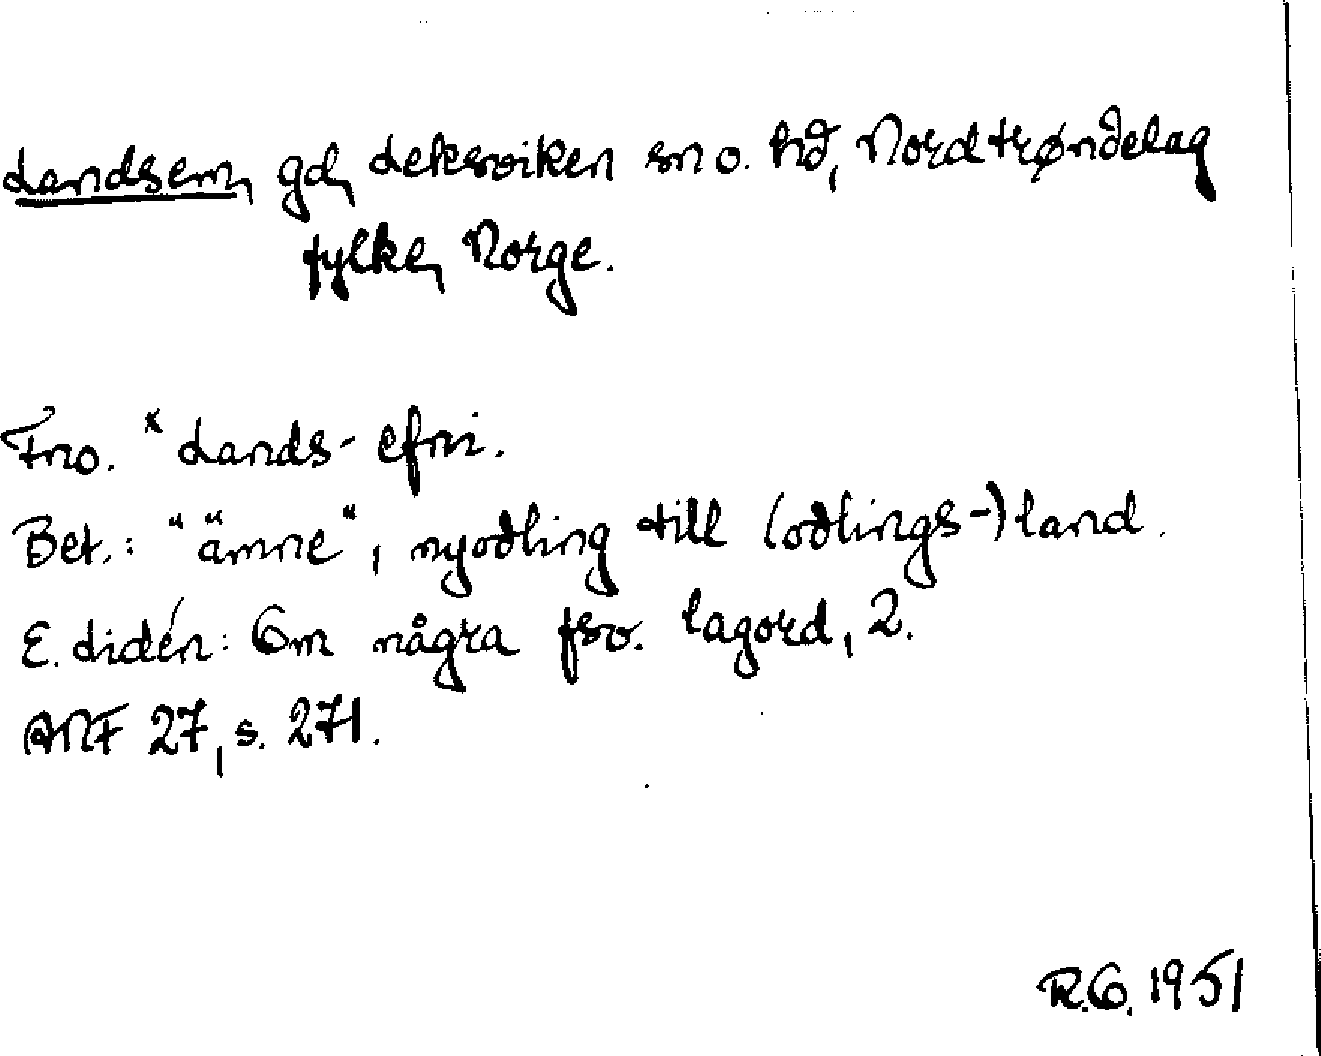 Landsem, gd, Leksviken sn o. hd, Nordtrøndelag
fylke, Norge.
Fno. *Lands-efni.
Bet.: "ämne", nyodling till (odlings-)land.
E. Lidén: Om några fsv. lagord, 2.
ANF 27, s. 271.
R.G. 1951